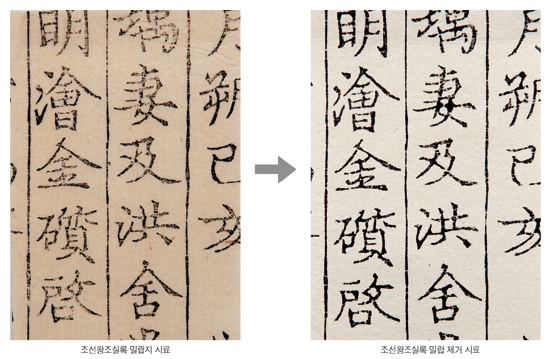 月朔己亥
堣妻及洪舍
明澮金礩啓
조선왕조실록 밀랍지 시료
月朔己亥
堣妻及洪舍
明澮金礩啓
조선왕조실록 밀랍 제거 시료